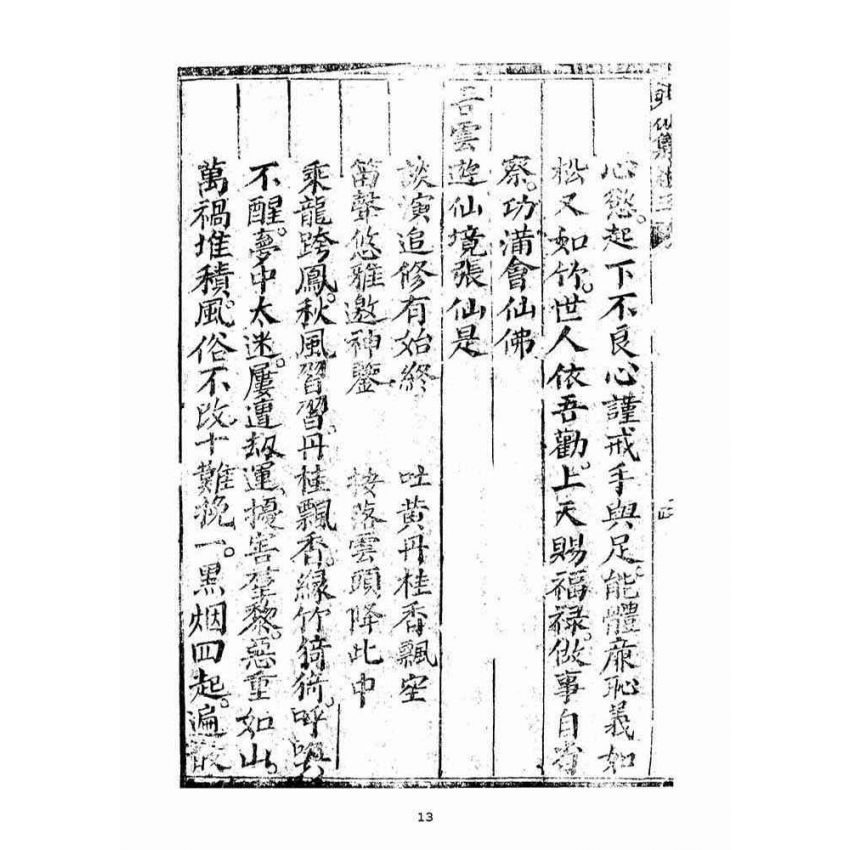 心慾。起下不良心謹戒手與足。能體廉恥義如
松又如竹。世人依吾勸。上天賜福祿。做事自省
察。功滿會仙佛
吾雲遊仙境張仙是
談演追修有始終 吐黃丹桂香飄空
笛聲悠雅邀神鑒 按落雲頭降此中
乘龍跨鳳。秋風習習。丹桂飄香。綠竹猗猗。呼
不醒。夢中太迷。屢遭刼運。擾害羣黎。惡重如山。
萬禍堆積。風俗不改。十難挽一。黑烟四起。遍
13